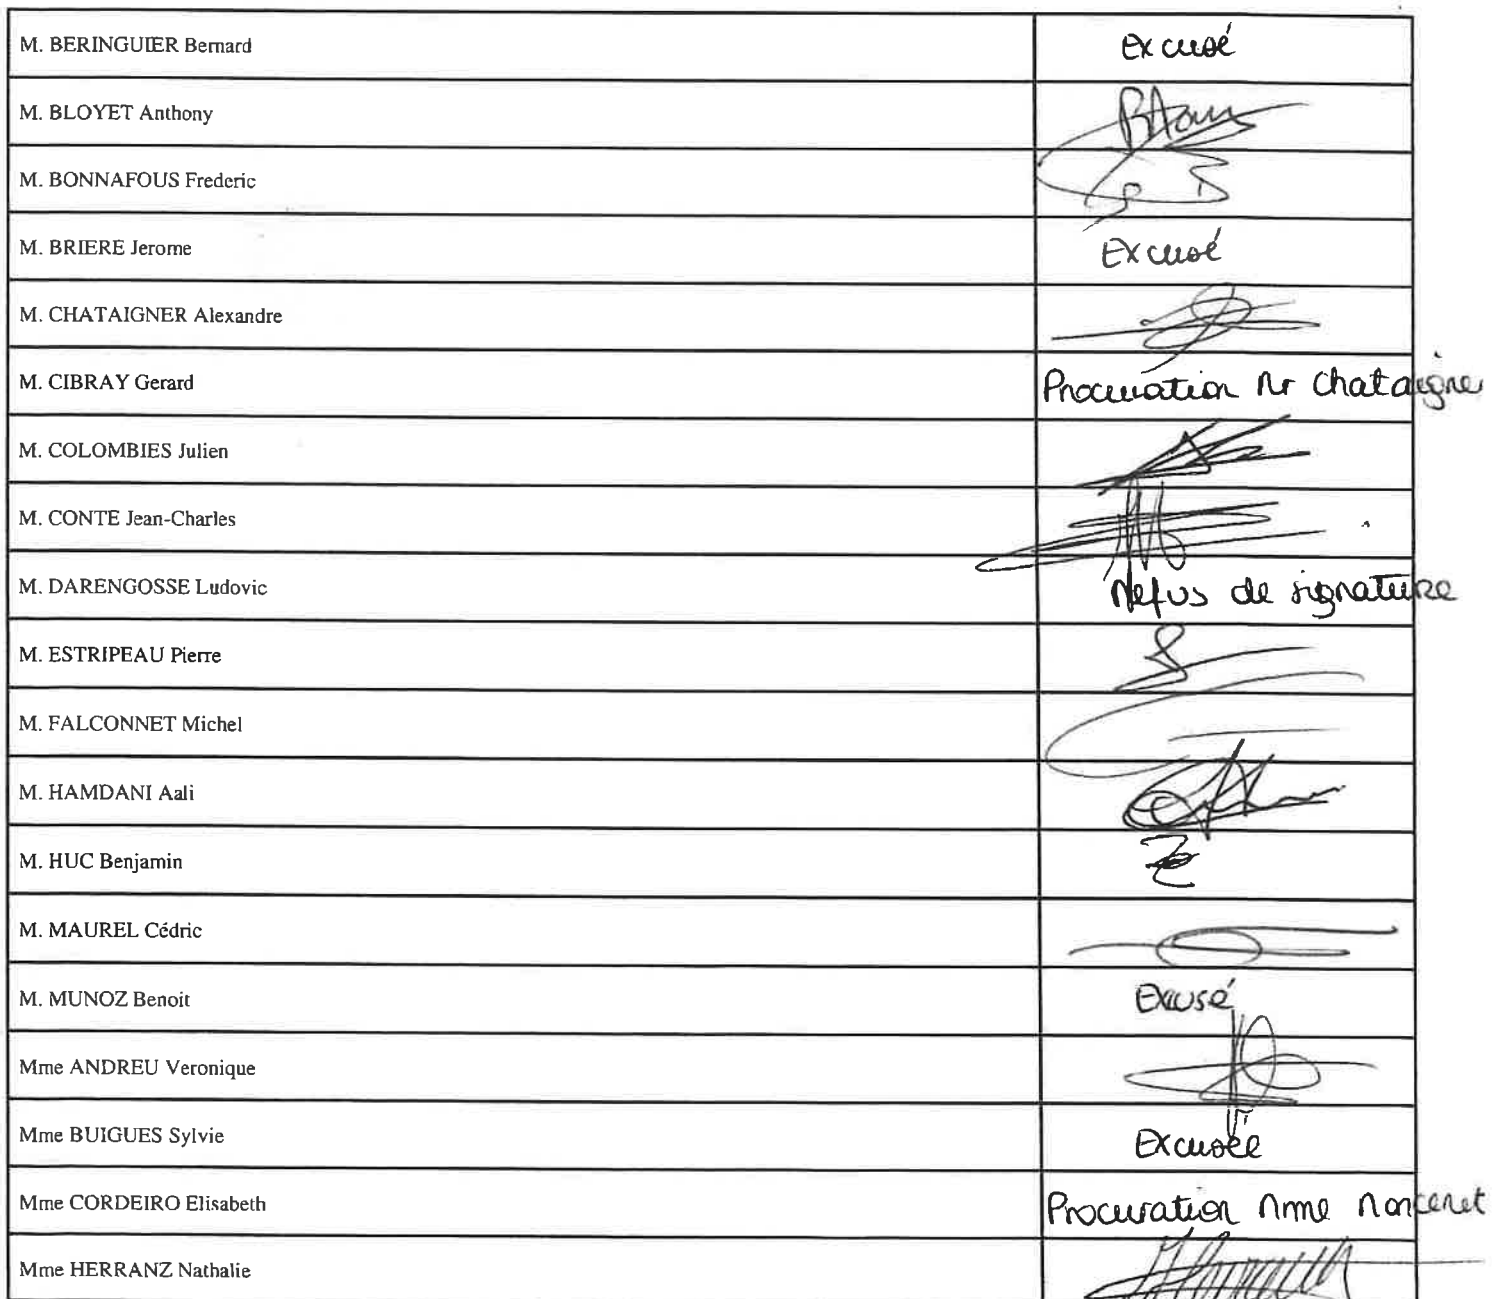 M. BERINGUIER Bernard Excusé
M. BLOYET Anthony
M. BONNAFOUS Frederic
M. BRIERE Jerome Excusé
M. CHATAIGNER Alexandre
M. CIBRAY Gerard Procuration Mr Chataigner
M. COLOMBIES Julien
M. CONTE Jean-Charles
M. DARENGOSSE Ludovic Refus de signature
M. ESTRIPEAU Pierre
M. FALCONNET Michel
M. HAMDANI Aali
M. HUC Benjamin
M. MAUREL Cédric
M. MUNOZ Benoit Excusé
Mme ANDREU Veronique
Mme BUIGUES Sylvie Excusée
Mme CORDEIRO Elisabeth Procuration Mme
Mme HERRANZ Nathalie